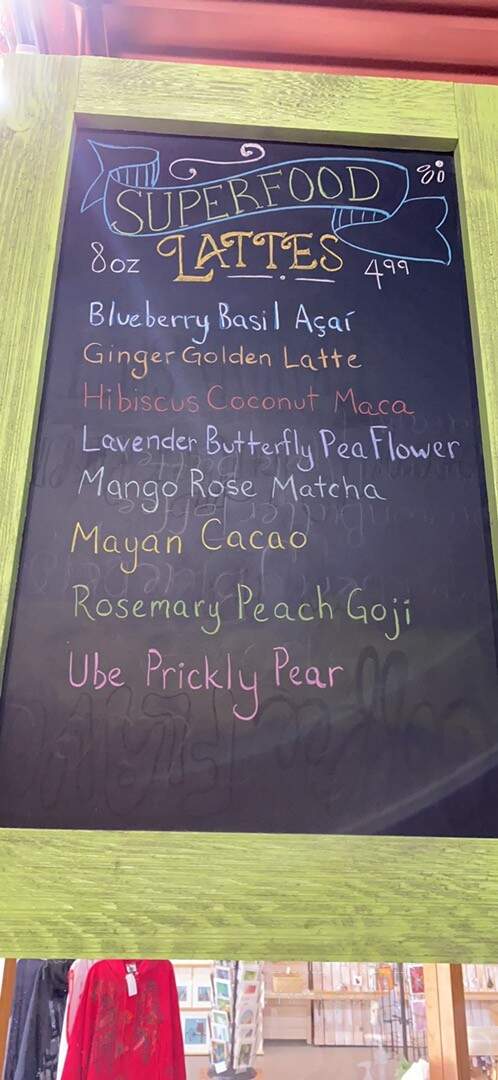 SUPERFOOD
LATTES
8oz
4.99
Blueberry Basil Açaí
Ginger Golden Latte
Hibiscus Coconut Maca
Lavender Butterfly Pea Flower
Mango Rose Matcha
Mayan Cacao
Rosemary Peach Goji
Ube Prickly Pear